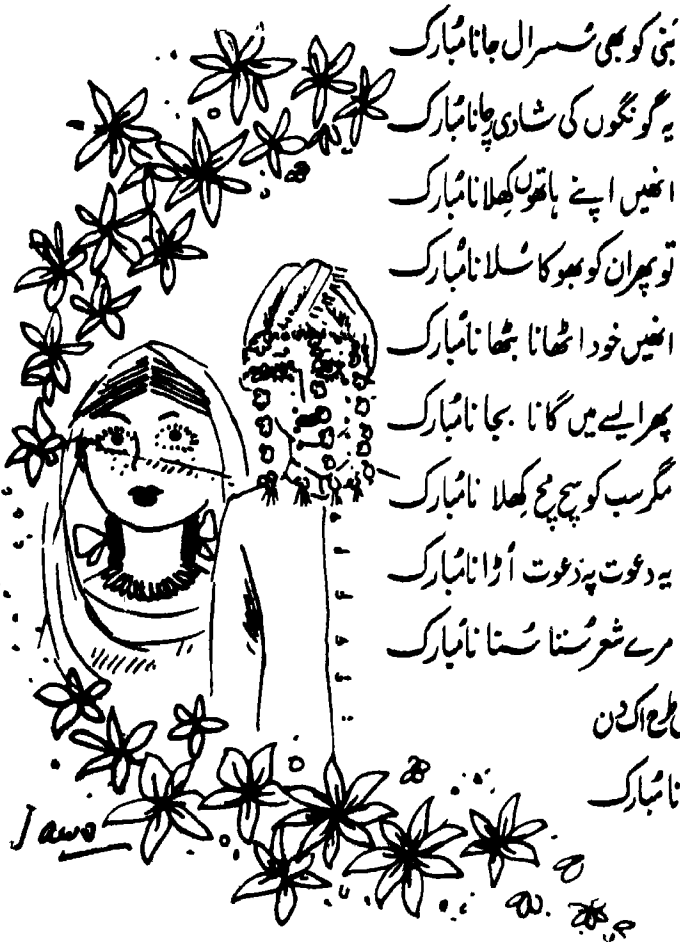 بنی کو بھی سُسرال جانا مُبارک
یہ گونگوں کی شادی رچانا مُبارک
انھیں اپنے ہاتھوں کھِلانا مُبارک
تو پھر ان کو بھوکا سُلانا مُبارک
انھیں خود اٹھانا بٹھانا مُبارک
پھر ایسے میں گانا بجانا مُبارک
مگر سب کو سچ مچ کھِلانا مُبارک
یہ دعوت پہ دعوت اُڑانا مُبارک
مرے شعر سُننا سُنانا مُبارک
طرح اک دن
نا مُبارک
Jawo